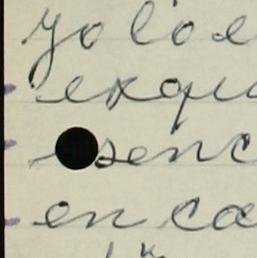 yo lo e
exqu
senc
en ca